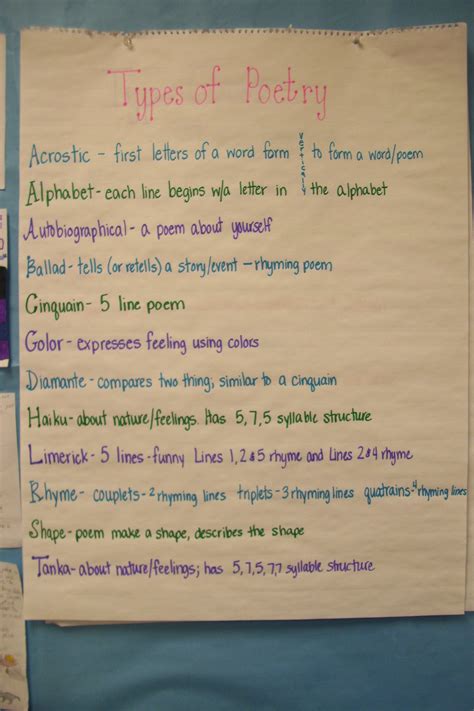 Types of Poetry
Acrostic - first letters of a word form vertically to form a word/poem
Alphabet - each line begins w/a letter in the alphabet
Autobiographical - a poem about yourself
Ballad - tells (or retells) a story/event - rhyming poem
Cinquain - 5 line poem
Color - expresses feeling using colors
Diamante - compares two thing; similar to a cinquain
Haiku - about nature/feelings. Has 5,7,5 syllable structure
Limerick - 5 lines - funny Lines 1,2&5 rhyme and Lines 2&4 rhyme
Rhyme - couplets - 2 rhyming lines triplets - 3 rhyming lines quatrains - 4 rhyming lines
Shape - poem make a shape, describes the shape
Tanka - about nature/feelings; has 5,7,5,7,7 syllable structure